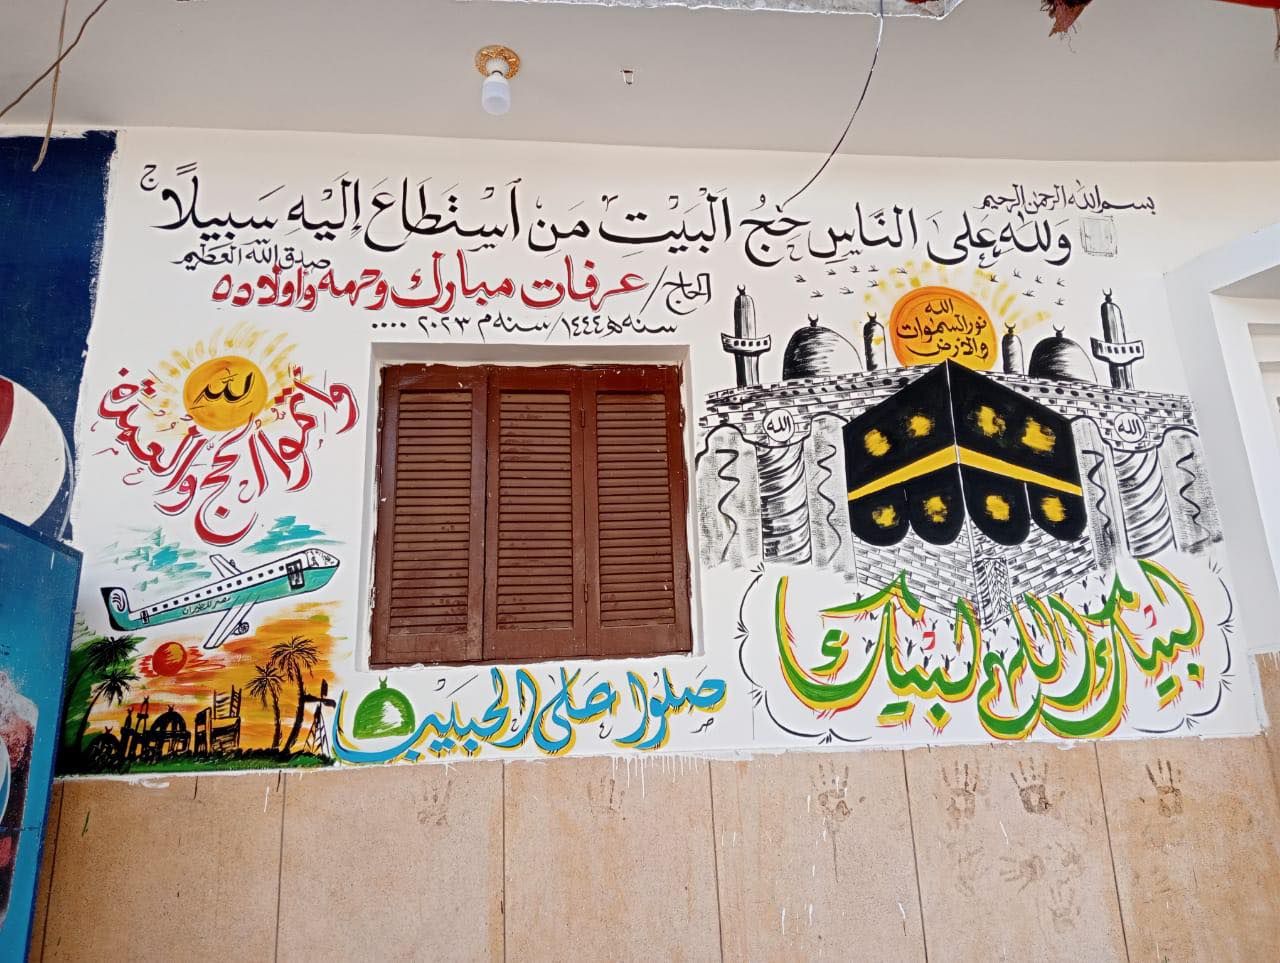 بسم الله الرحمن الرحيم
ولله على الناس حج البيت من استطاع إليه سبيلاً
صدق الله العظيم
الحاج / عرفات مبارك وحرمه وأولاده
سنه ١٤٤٤هـ / سنه ٢٠٢٣م ....
الله
نور السموات
والأرض
الله
الله
لله
وأتموا الحج والعمرة
مصر للطيران
لبيك اللهم لبيك
صلوا على الحبيب